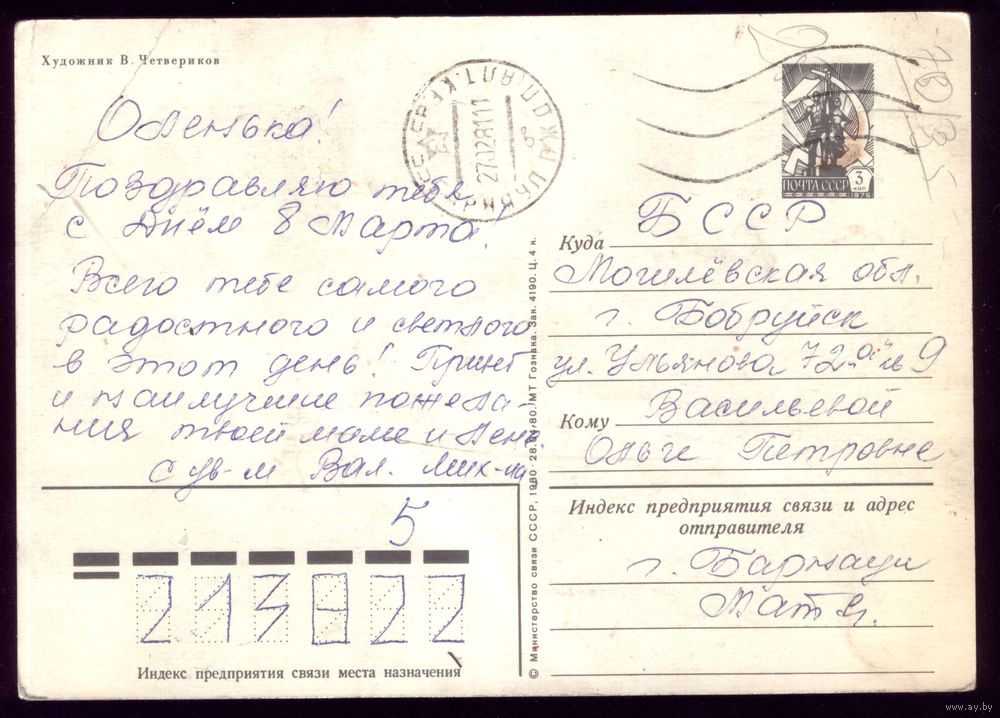 Художник В. Четвериков
Оленька!
Поздравляю тебя
с Днём 8 Марта!
Всего тебе самого
радостного и светлого
в этот день! Привет
и наилучшие пожела-
ния твоей маме и Лене
С ув-м Вал. Мих-на
5
213822
Индекс предприятия связи места назначения
© Министерство связи СССР, 1980 28.04.80. МТ Гознака. Зак. 4190. Ц. 4 к.
27028111
ПОЧТА СССР
3 КОП
1976
Куда БССР
Могилёвская обл.
г. Бобруйск
ул. Ульянова 72
Кому Васильевой
Ольге Петровне
Индекс предприятия связи и адрес
отправителя
г.
www.ay.by